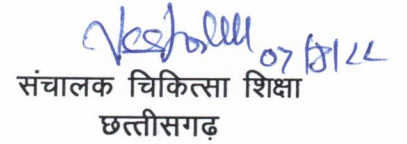 07/8/22
संचालक चिकित्सा शिक्षा
छत्तीसगढ़